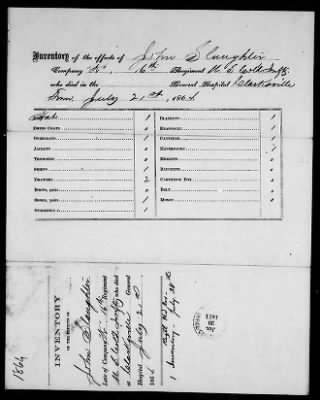 Inventory of the effects of John Slaughter
Company K, 16th Regiment U. S. Cold Infy
who died in the General Hospital Clarksville
Tenn July 21st, 1864.
Hats 1
Dress Coats 0
Overcoats 1
Jackets 0
Trowsers 0
Shirts 1
Drawers 2
Boots, pair 0
Shoes, pair 1
Stockings
Blankets 1
Knapsacks 1
Canteens 1
Haversacks
Muskets 0
Bayonets 0
Cartridge Box 0
Belt 0
Money 0
INVENTORY
OF THE EFFECTS OF
John Slaughter
Late of Company K 16th Regiment
U. S. Cold Infty who died
at Clarksville General
Hospital July 21st
1864
1 Inventory July 28th
1864